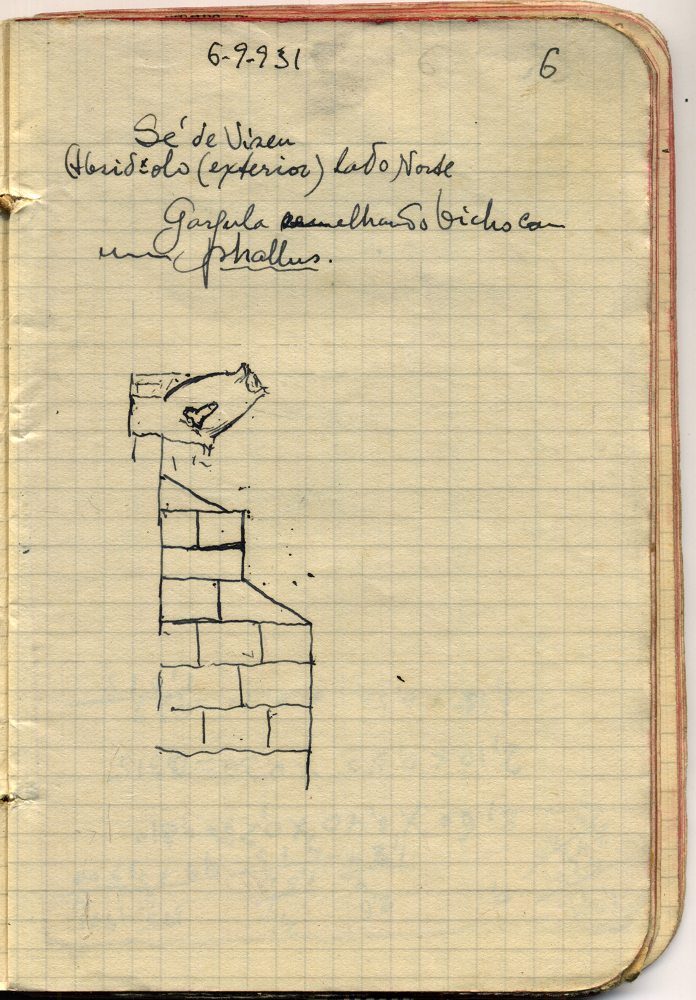 6-9-931
6
Sé de Vizeu
Absidiolo (exterior) lado Norte
Gargula semelhando bicho com
um phallus.